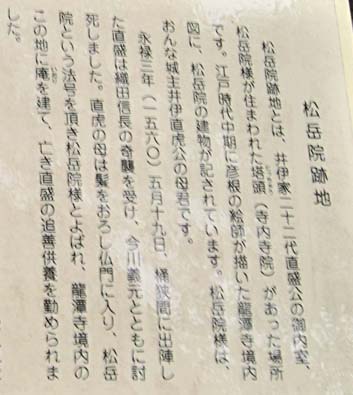 松岳院跡地
松岳院跡地とは、井伊家二十二代直盛公の御内室、
松岳院様が住まわれた塔頭（寺内寺院）があった場所
です。江戸時代中期に彦根の絵師が描いた龍潭寺境内
図に、松岳院の建物が記されています。松岳院様は、
おんな城主井伊直虎公の母君です。
永禄三年（一五六〇）五月十九日、桶狭間に出陣し
た直盛は織田信長の奇襲を受け、今川義元とともに討
死しました。直虎の母は髪をおろし仏門に入り、松岳
院という法号を頂き松岳院様とよばれ、龍潭寺境内の
この地に庵を建て、亡き直盛の追善供養を勤められま
した。